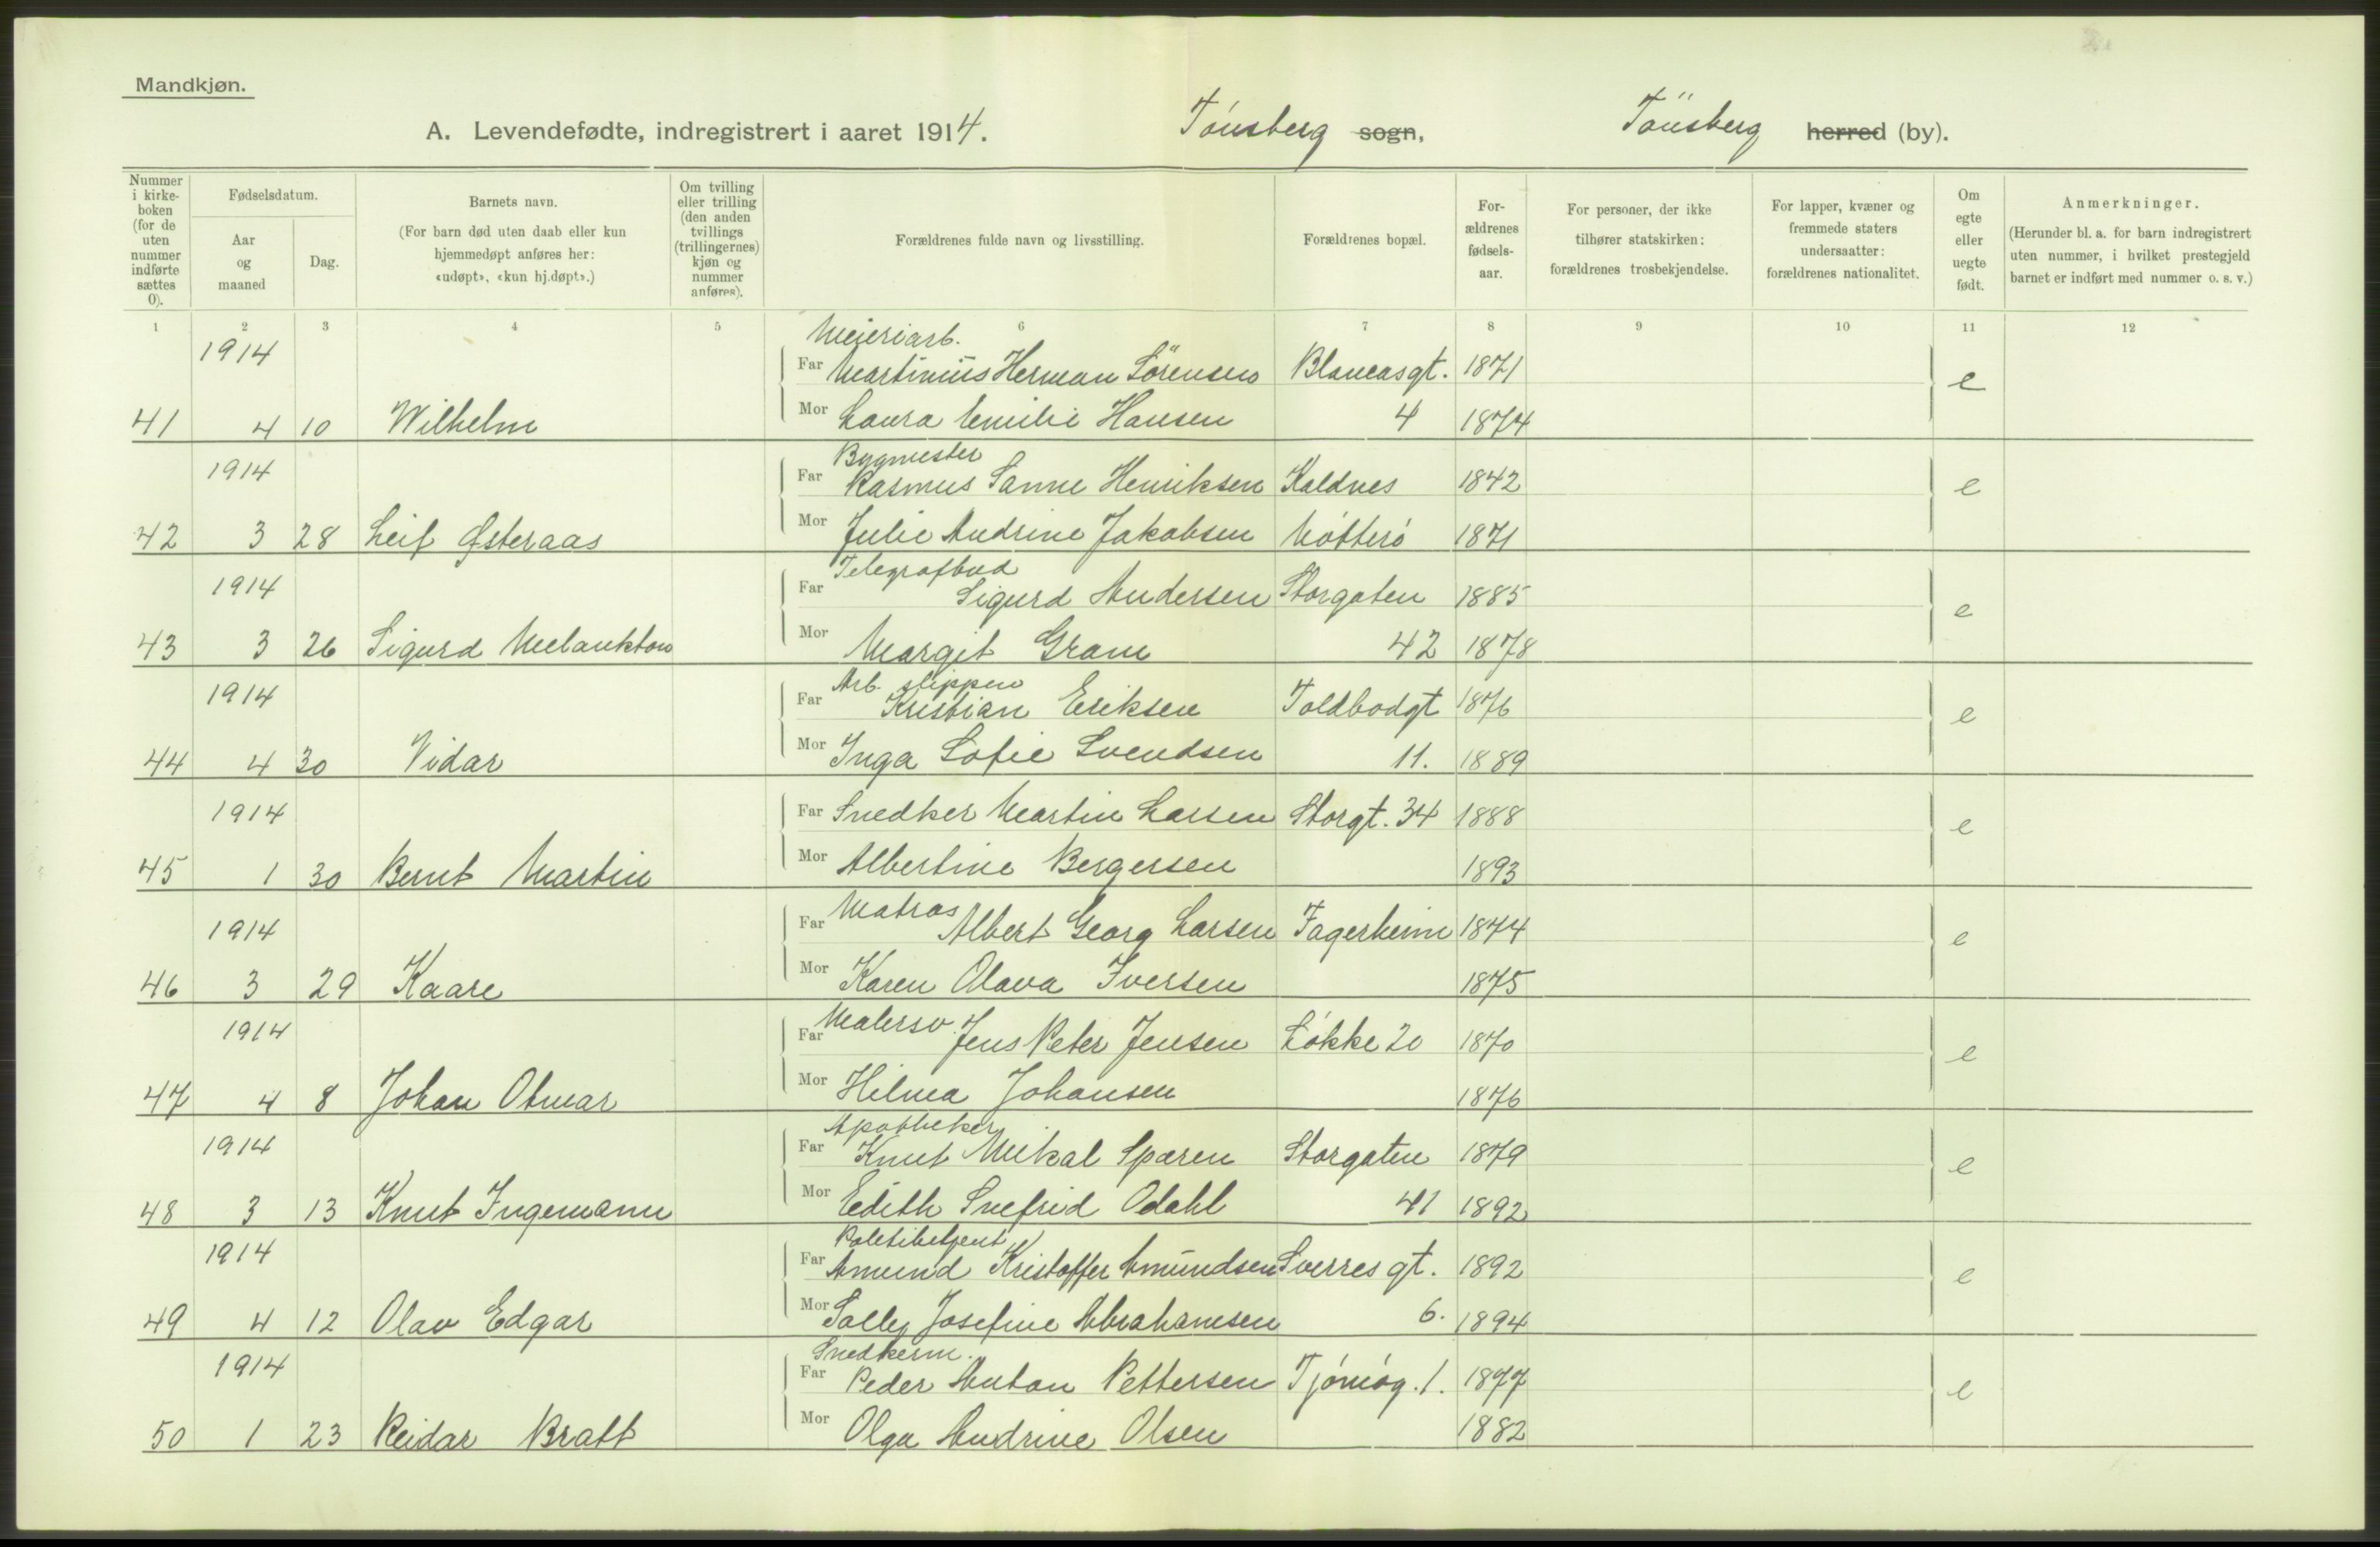 Mandkjøn.
A. Levendefødte, indregistrert i aaret 1914. Tónsberg sogn, Tönsberg herred (by).
Nummer i kirkeboken (for de uten nummer indførte sættes 0).
Fødselsdatum.
Aar og maaned
Dag.
Barnets navn.
(For barn død uten daab eller kun hjemmedøpt anføres her: «udøpt», «kun hj.døpt».)
Om tvilling eller trilling (den anden tvillings (trillingernes) kjøn og nummer anføres).
Forældrenes fulde navn og livsstilling.
Forældrenes bopæl.
Forældrenes fødselsaar.
For personer, der ikke tilhører statskirken: forældrenes trosbekjendelse.
For lapper, kvæner og fremmede staters undersaatter: forældrenes nationalitet.
Om egte eller uegte født.
Anmerkninger.
(Herunder bl. a. for barn indregistrert uten nummer, i hvilket prestegjeld barnet er indført med nummer o. s. v.)
1 2 3 4 5 6 7 8 9 10 11 12
Meieriarb.
1914 Far Martinius Herman Sörensen Blancasgt. 1871 e
41 4 10 Wilhelm Mor Laura Emilie Hansen 4 1874
Bygmester
1914 Far Rasmus Sanne Henriksen Kaldnes 1842 e
42 3 28 Leif Østeraas Mor Julie Andrine Jakobsen Nótteró 1871
Telegrafbud
1914 Far Sigurd Andersen Storgaten 1885 e
43 3 26 Sigurd Melankton Mor Margit Gram 42 1878
Arb. slippen
1914 Far Kristian Eriksen Toldbodgt 1876 e
44 4 30 Vidar Mor Inga Sofie Svendsen 11. 1889
1914 Far Snedker Martin Larsen Storgt. 34 1888 e
45 1 30 Bernt Martin Mor Albertine Bergersen 1893
1914 Far Matros Albert Georg Larsen Fagerheim 1874 e
46 3 29 Kaare Mor Karen Olava Iversen 1875
1914 Far Malersv. Jens Peter Jensen Lókke 20 1870 e
47 4 8 Johan Otmar Mor Hilma Johansen 1876
Apotheker
1914 Far Knut Mikal Sparen Storgaten 1879 e
48 3 13 Knut Ingemann Mor Edith Snefrid Odahl 41 1892
Politibetjent
1914 Far Amund Kristoffer Amundsen Sverres gt. 1892 e
49 4 12 Olav Edgar Mor Sally Josefine Abrahamsen 6. 1894
Snedkerm.
1914 Far Peder Anton Pettersen Tjómóg. 1. 1877 e
50 1 23 Reidar Bratt Mor Olga Andrine Olsen 1882